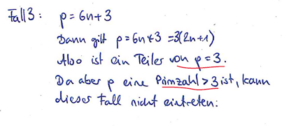 Fall 3: p = 6n+3
Dann gilt p = 6n+3 = 3(2n+1)
Also ist ein Teiler von p = 3.
Da aber p eine Primzahl > 3 ist, kann
dieser Fall nicht eintreten.